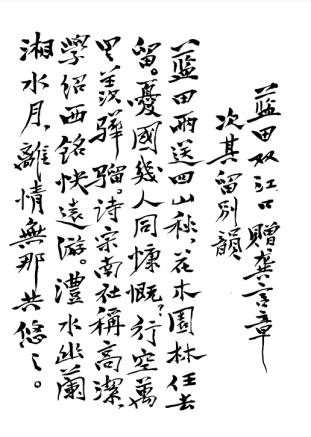 藍田双江口贈龔言章
次其留別韻
藍田両送四山秋,花木園林任去
留。憂國幾人同慷慨?行空萬
里羨驊騮。詩宗南社稱高潔,
學紹西銘快遠游。澧水幽蘭
湘水月,離情無那共悠々。